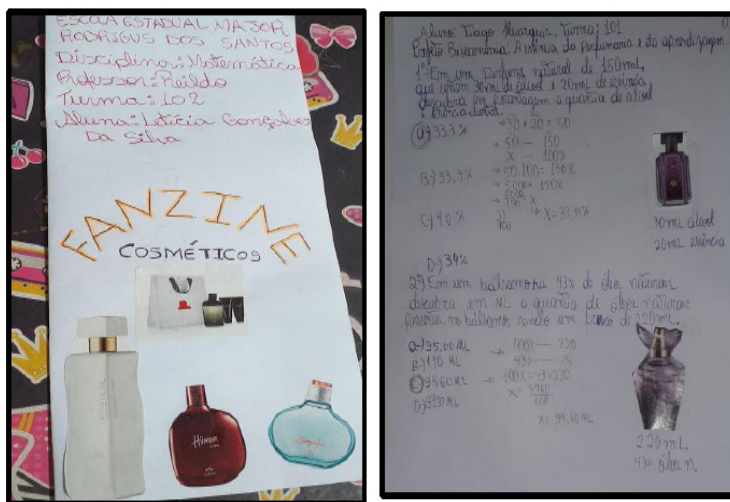 ESCOLA ESTADUAL MAJOR
RODRIGUS DOS SANTOS
Disciplina: Matemática
Professor: Reildo
Turma: 102
Aluna: Letícia Gonçalves
Da Silva
FANZINE
COSMÉTICOS
Humor
Aluno: Tiago Turma: 101
Bioeconomia: A essência da Perfumaria e da aprendizagem
1º) Em um perfume natural de 150mL,
que contém 30mL de álcool e 20mL de essência
descubra em porcentagem a quantia de álcool
e essência
A) 33,3%
30 + 20 = 50
50 — 150
X — 100%
B) 33,9%
50.100 = 150X
5000 = 150X
C) 40%
X = 33,3%
30mL álcool
20mL essência
D) 34%
2º) Em um bálsamo há 43% de óleos naturais
descubra em ML a quantia de óleos naturais
no bálsamo sendo um frasco de 220mL.
A) 95,00ML
100% — 220
B) 110 ML
43% — X
C) 94,60ML
100X = 43.220
X = 9460
100
X = 94,60ML
220mL
43% óleo n.